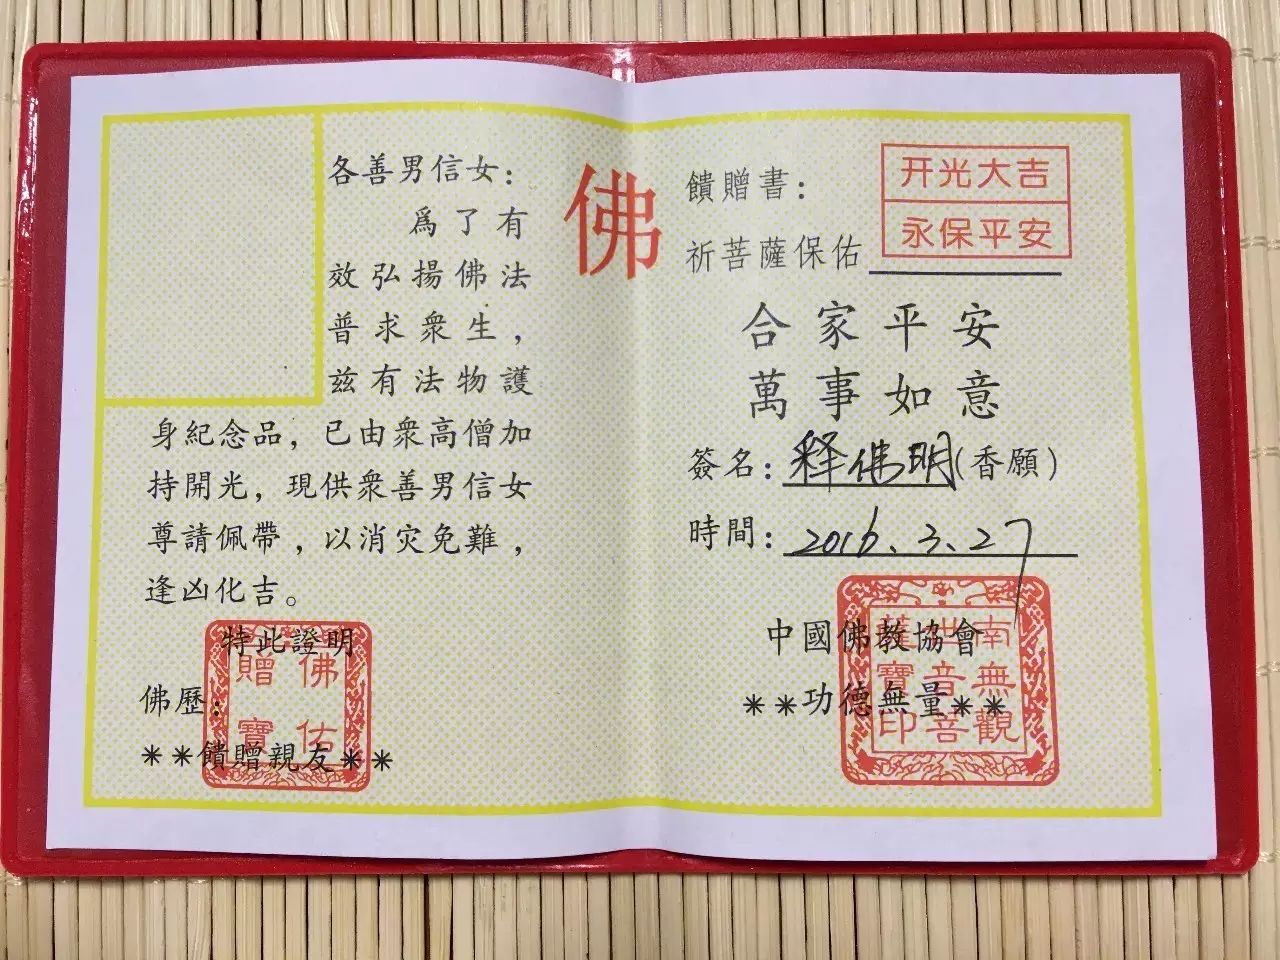 各善男信女：
爲了有
效弘揚佛法
普求衆生，
兹有法物護
身紀念品，已由衆高僧加
持開光，現供衆善男信女
尊請佩帶，以消灾免難，
逢凶化吉。
特此證明
佛歷：
**饋贈親友**
佛佑
贈寶
佛
饋贈書：
开光大吉
永保平安
祈菩薩保佑
合家平安
萬事如意
簽名：释佛明（香願）
時間：2016.3.27
中國佛教協會
**功德無量**
南無觀
世音菩
薩寶印